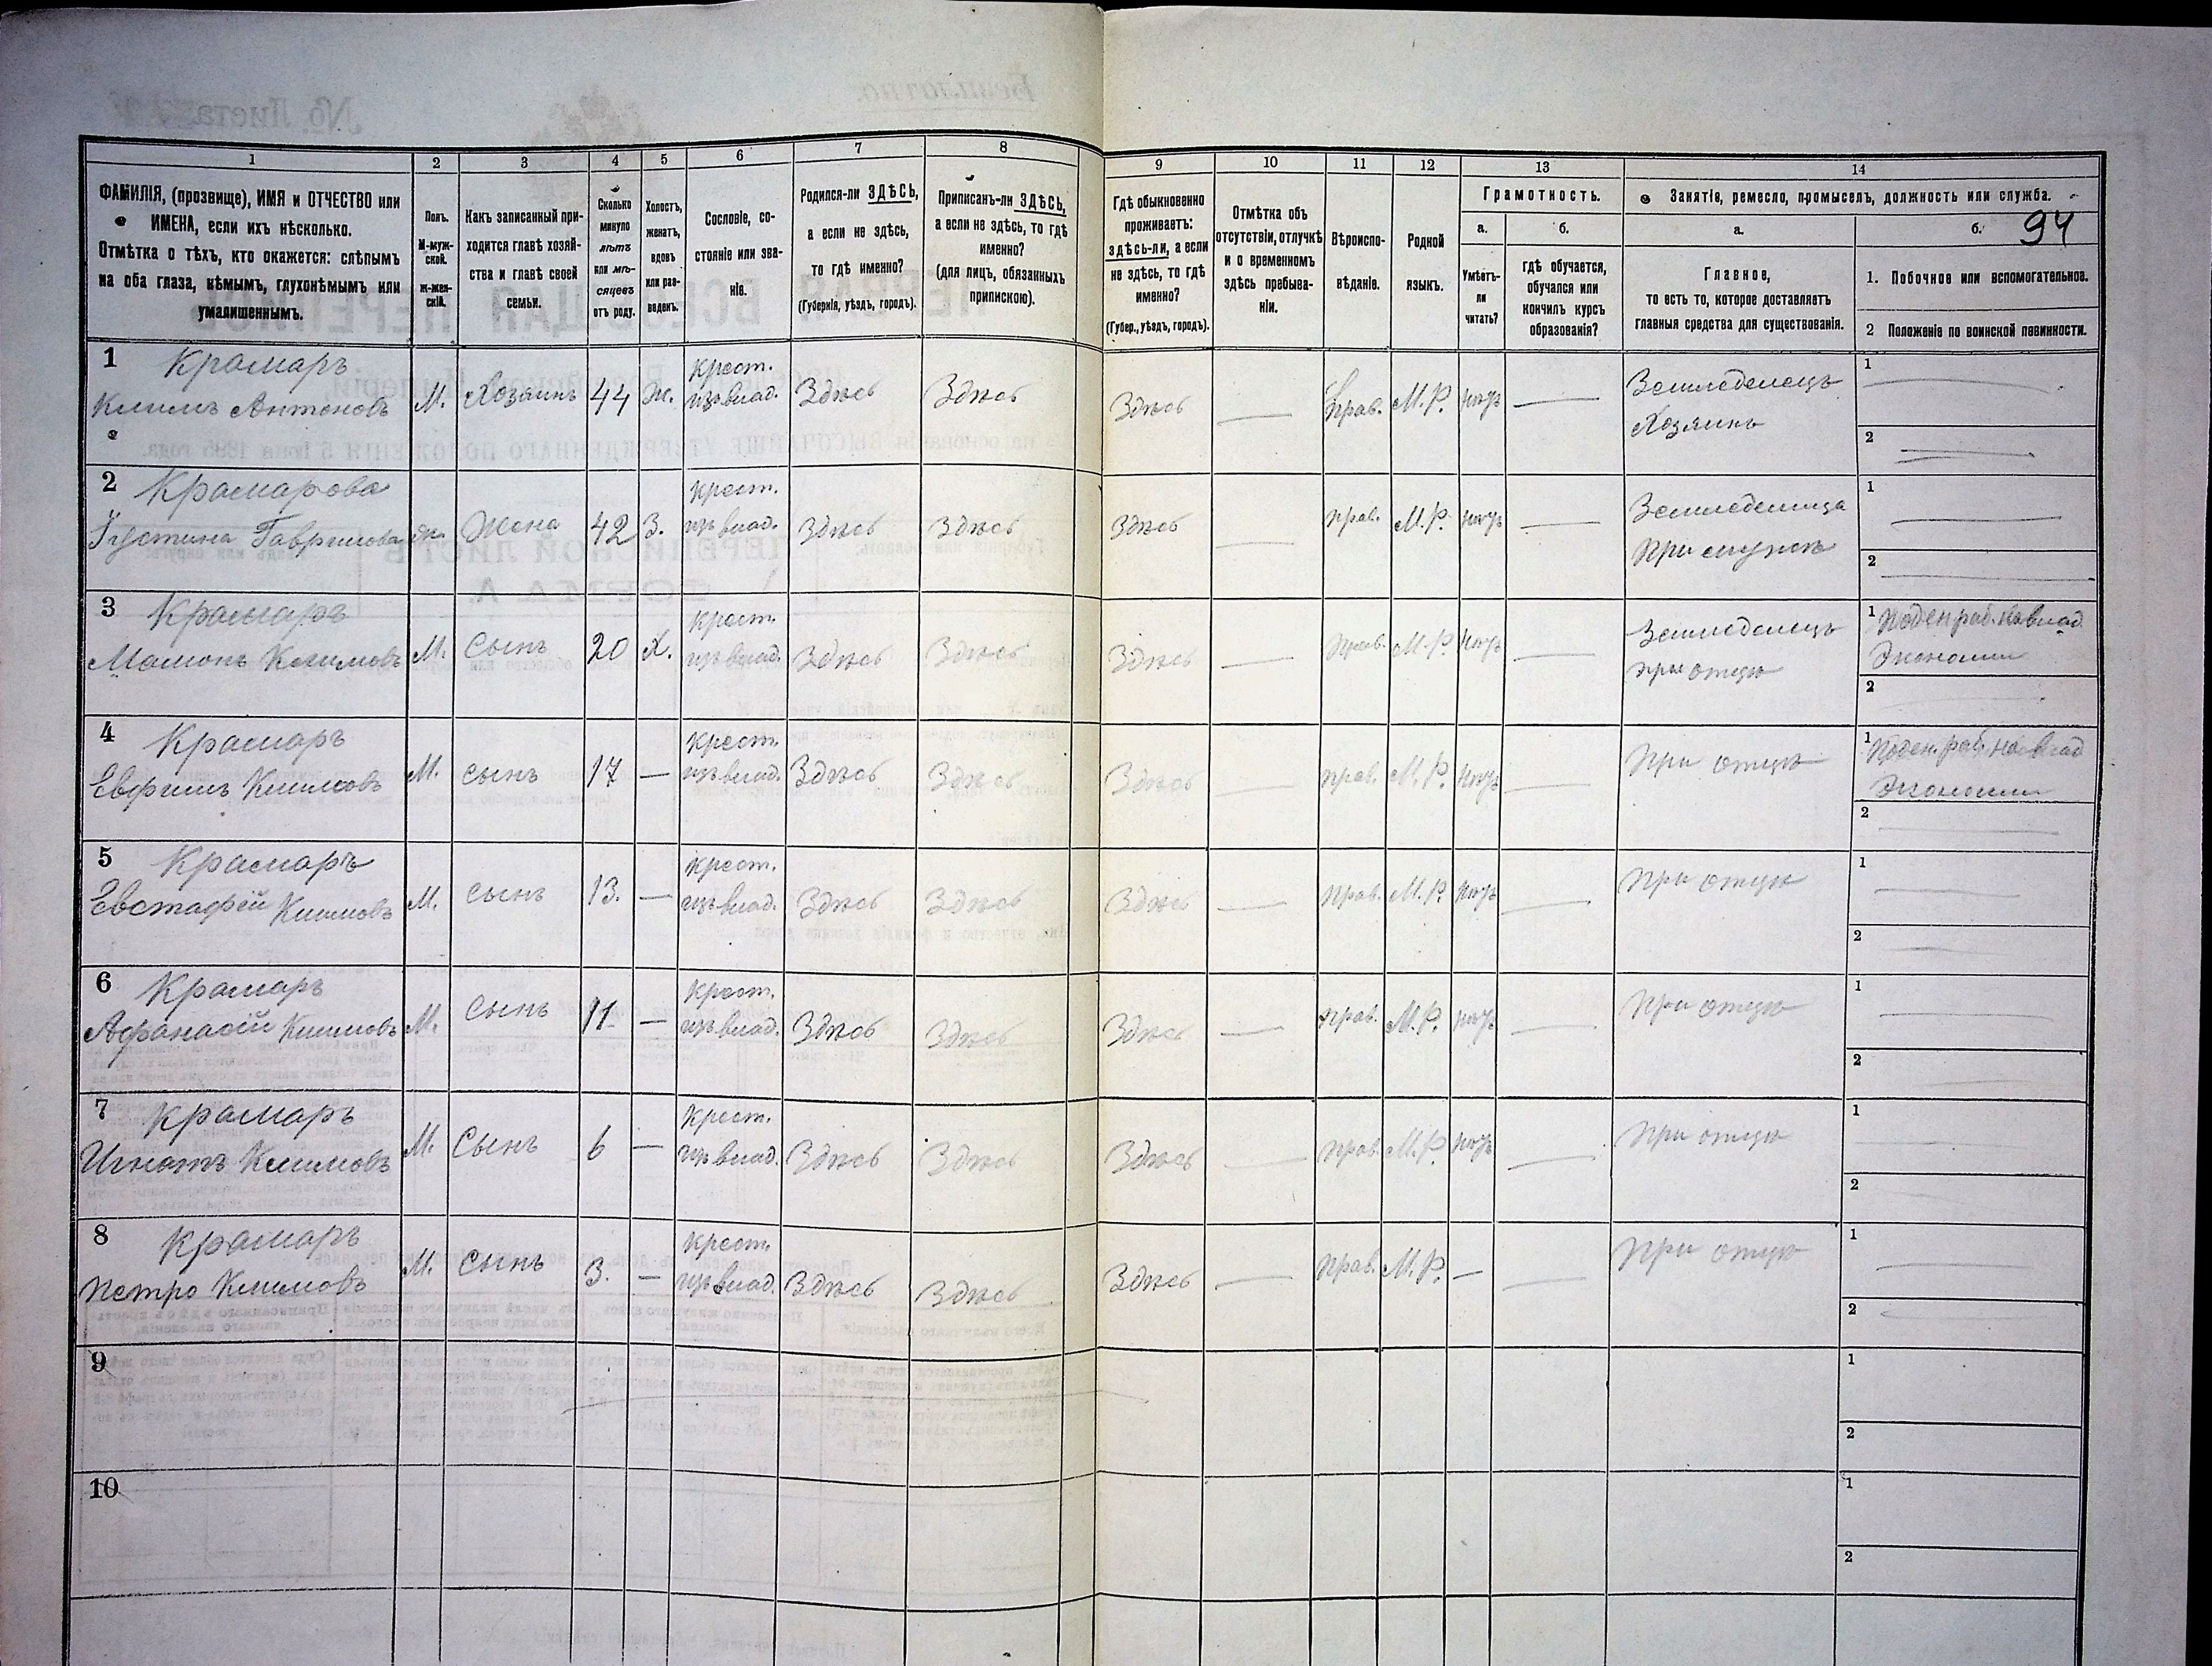 1 2 3 4 5 6 7 8 9 10 11 12 13 14
ФАМИЛІЯ, (прозвище), ИМЯ и ОТЧЕСТВО или
ИМЕНА, если ихъ нѣсколько.
Отмѣтка о тѣхъ, кто окажется: слѣпымъ
на оба глаза, нѣмымъ, глухонѣмымъ или
умалишеннымъ.
Полъ.
М-муж-
ской.
ж-жен-
скій.
Какъ записанный при-
ходится главѣ хозяй-
ства и главѣ своей
семьи.
Сколько
минуло
лѣтъ
или мѣ-
сяцевъ
отъ роду.
Холостъ,
женатъ,
вдовъ
или раз-
веденъ.
Сословіе, со-
стояніе или зва-
ніе.
Родился-ли ЗДѢСЬ,
а если не здѣсь,
то гдѣ именно?
(Губернія, уѣздъ, городъ).
Приписанъ-ли ЗДѢСЬ,
а если не здѣсь, то гдѣ
именно?
(для лицъ, обязанныхъ
припискою).
Гдѣ обыкновенно
проживаетъ:
здѣсь-ли, а если
не здѣсь, то гдѣ
именно?
(Губер., уѣздъ, городъ).
Отмѣтка объ
отсутствіи, отлучкѣ
и о временномъ
здѣсь пребыва-
ніи.
Вѣроиспо-
вѣданіе.
Родной
языкъ.
Грамотность.
а.
Умѣетъ-
ли
читать?
б.
гдѣ обучается,
обучался или
кончилъ курсъ
образованія?
Занятіе, ремесло, промыселъ, должность или служба.
94
а.
Главное,
то есть то, которое доставляетъ
главныя средства для существованія.
б.
1. Побочное или вспомогательное.
2 Положеніе по воинской повинности.
1 Крамаръ крест. 1
Климъ Антоновъ М. Хозяинъ 44 Ж. изъ влад. Здѣсь Здѣсь Здѣсь — прав. М.Р. нѣтъ — Земледѣлецъ
Хозяинъ 2
2 Крамарова крест. 1
Густина Гаврилова ж. Жена 42 З. изъ влад. Здѣсь Здѣсь Здѣсь — прав. М.Р. нѣтъ — Земледѣлица
При мужѣ 2
3 Крамаръ крест. 1 Поден. раб. на влад
Мамонъ Климовъ М. Сынъ 20 Х. изъ влад. Здѣсь Здѣсь Здѣсь — прав. М.Р. нѣтъ — Земледѣлецъ Экономіи
при отцѣ 2
4 Крамаръ крест. 1 Поден. раб. на влад
Евфимъ Климовъ М. сынъ 17 — изъ влад. Здѣсь Здѣсь Здѣсь — прав. М.Р. нѣтъ — При отцѣ Экономіи
2
5 Крамаръ крест. 1
Евстафій Климовъ М. сынъ 13. — изъ влад. Здѣсь Здѣсь Здѣсь — прав. М.Р. нѣтъ — При отцѣ
2
6 Крамаръ крест. 1
Афанасій Климовъ М. Сынъ 11 — изъ влад. Здѣсь Здѣсь Здѣсь — прав. М.Р. нѣтъ — При отцѣ
2
7 Крамаръ Крест. 1
Игнатъ Климовъ М. Сынъ 6 — изъ влад. Здѣсь Здѣсь Здѣсь — прав. М.Р. нѣтъ — При отцѣ
2
8 Крамаръ Крест. 1
Петро Климовъ М. Сынъ 3. — изъ влад. Здѣсь Здѣсь Здѣсь — прав. М.Р. — — При отцѣ
2
9 1
2
10 1
2